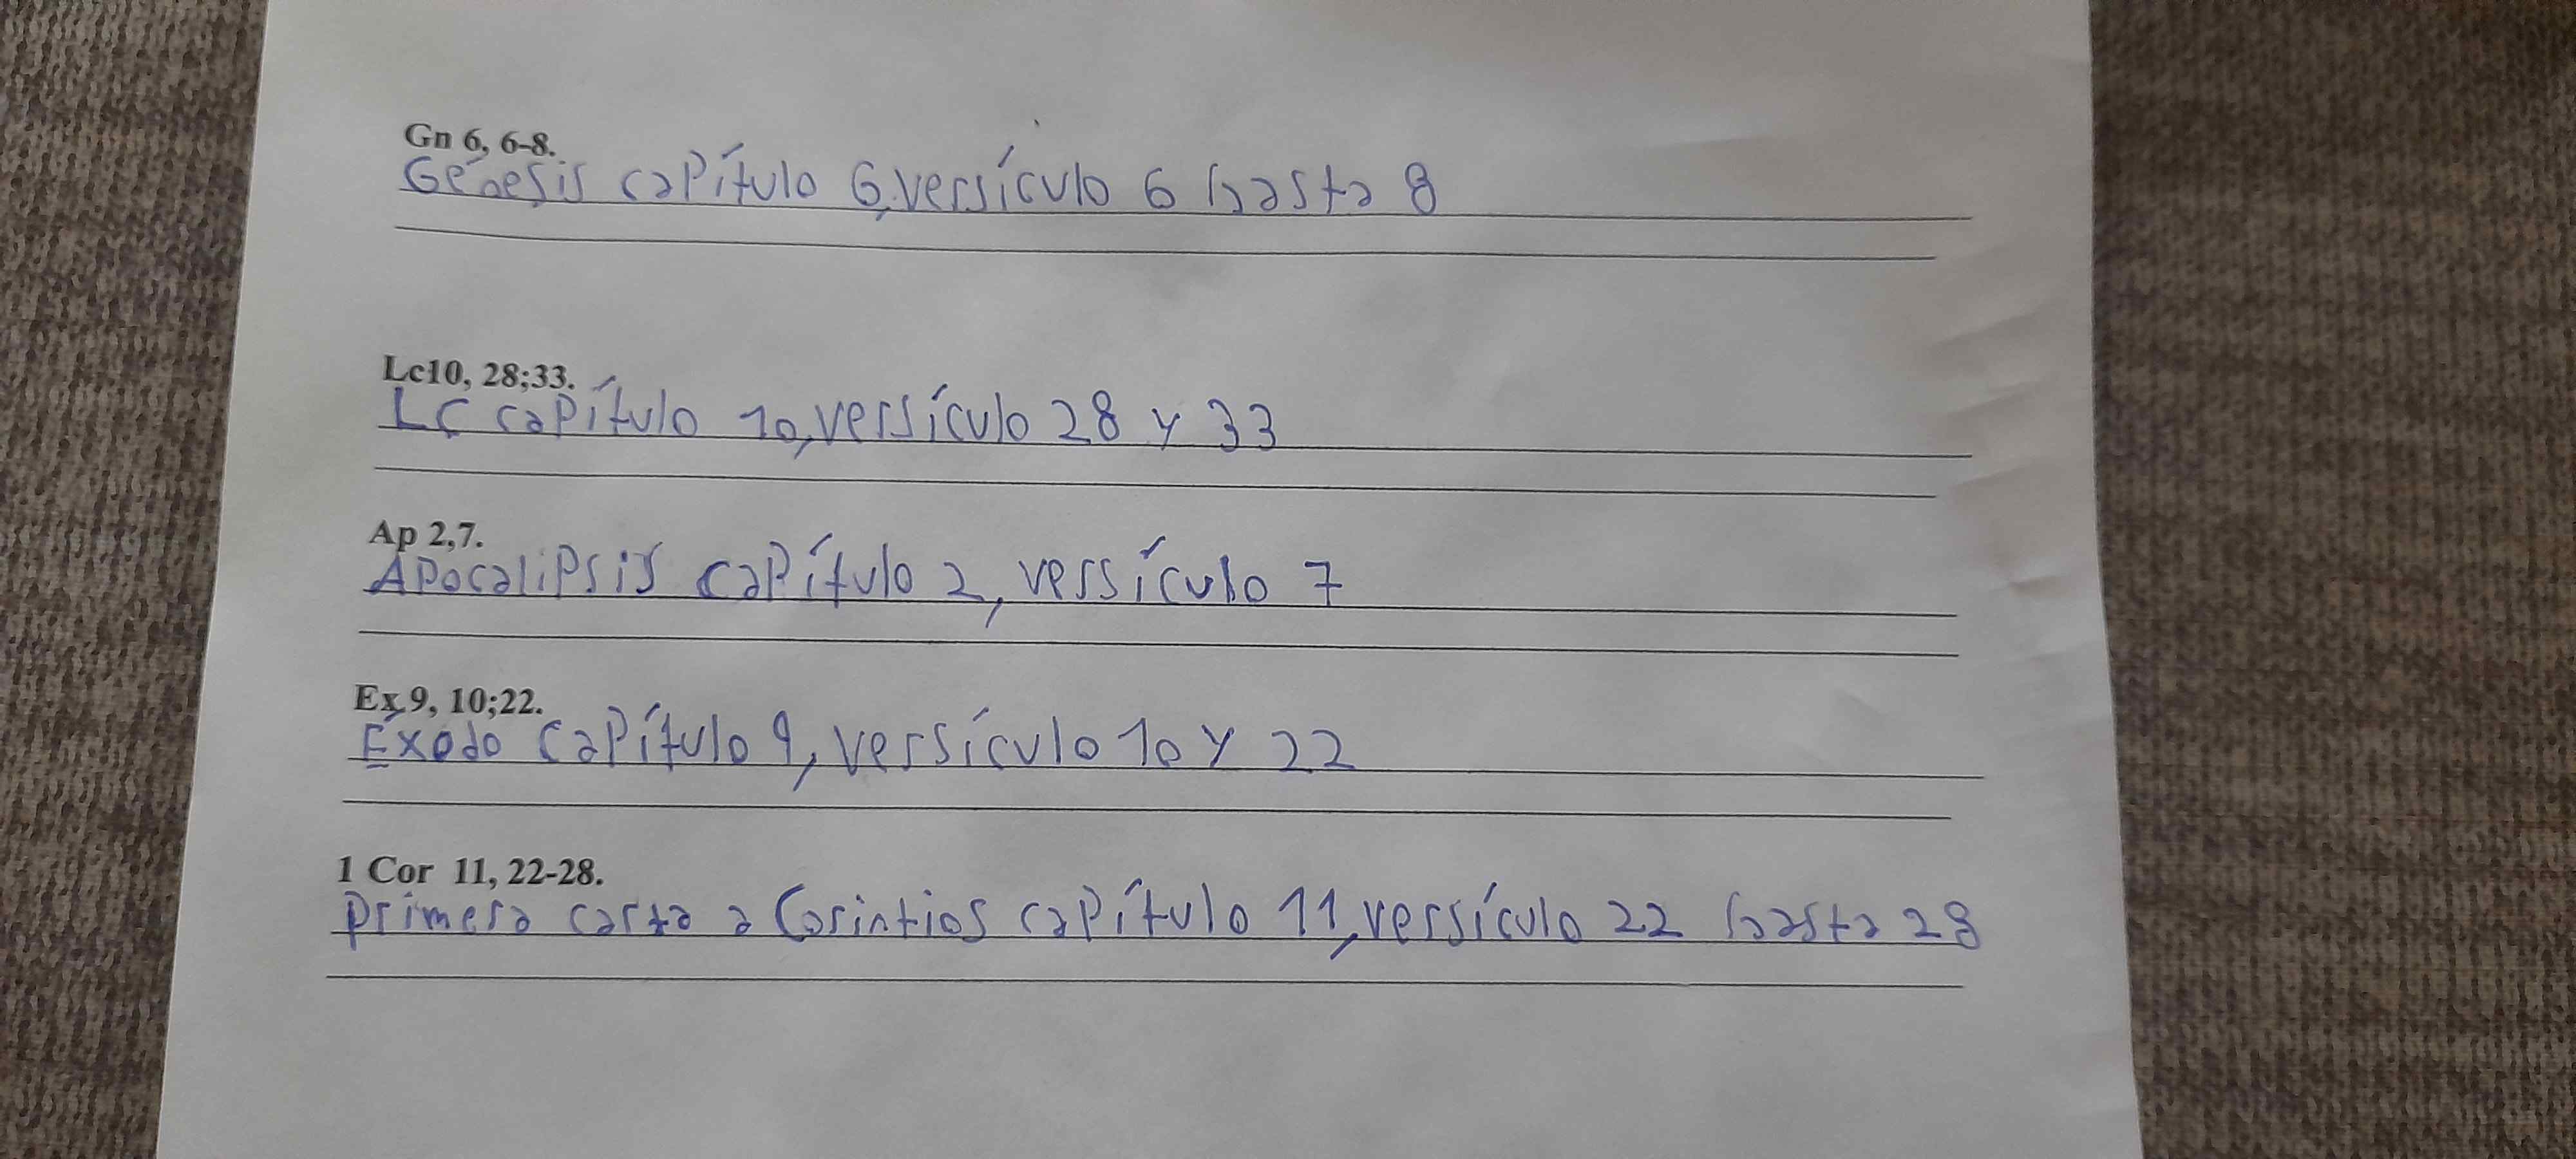 Gn 6, 6-8.
Génesis capítulo 6, versículo 6 hasta 8
Lc10, 28;33.
Lc capítulo 10, versículo 28 y 33
Ap 2,7.
Apocalipsis capítulo 2, versículo 7
Ex 9, 10;22.
Éxodo capítulo 9, versículo 10 y 22
1 Cor 11, 22-28.
Primera carta a Corintios capítulo 11, versículo 22 hasta 28